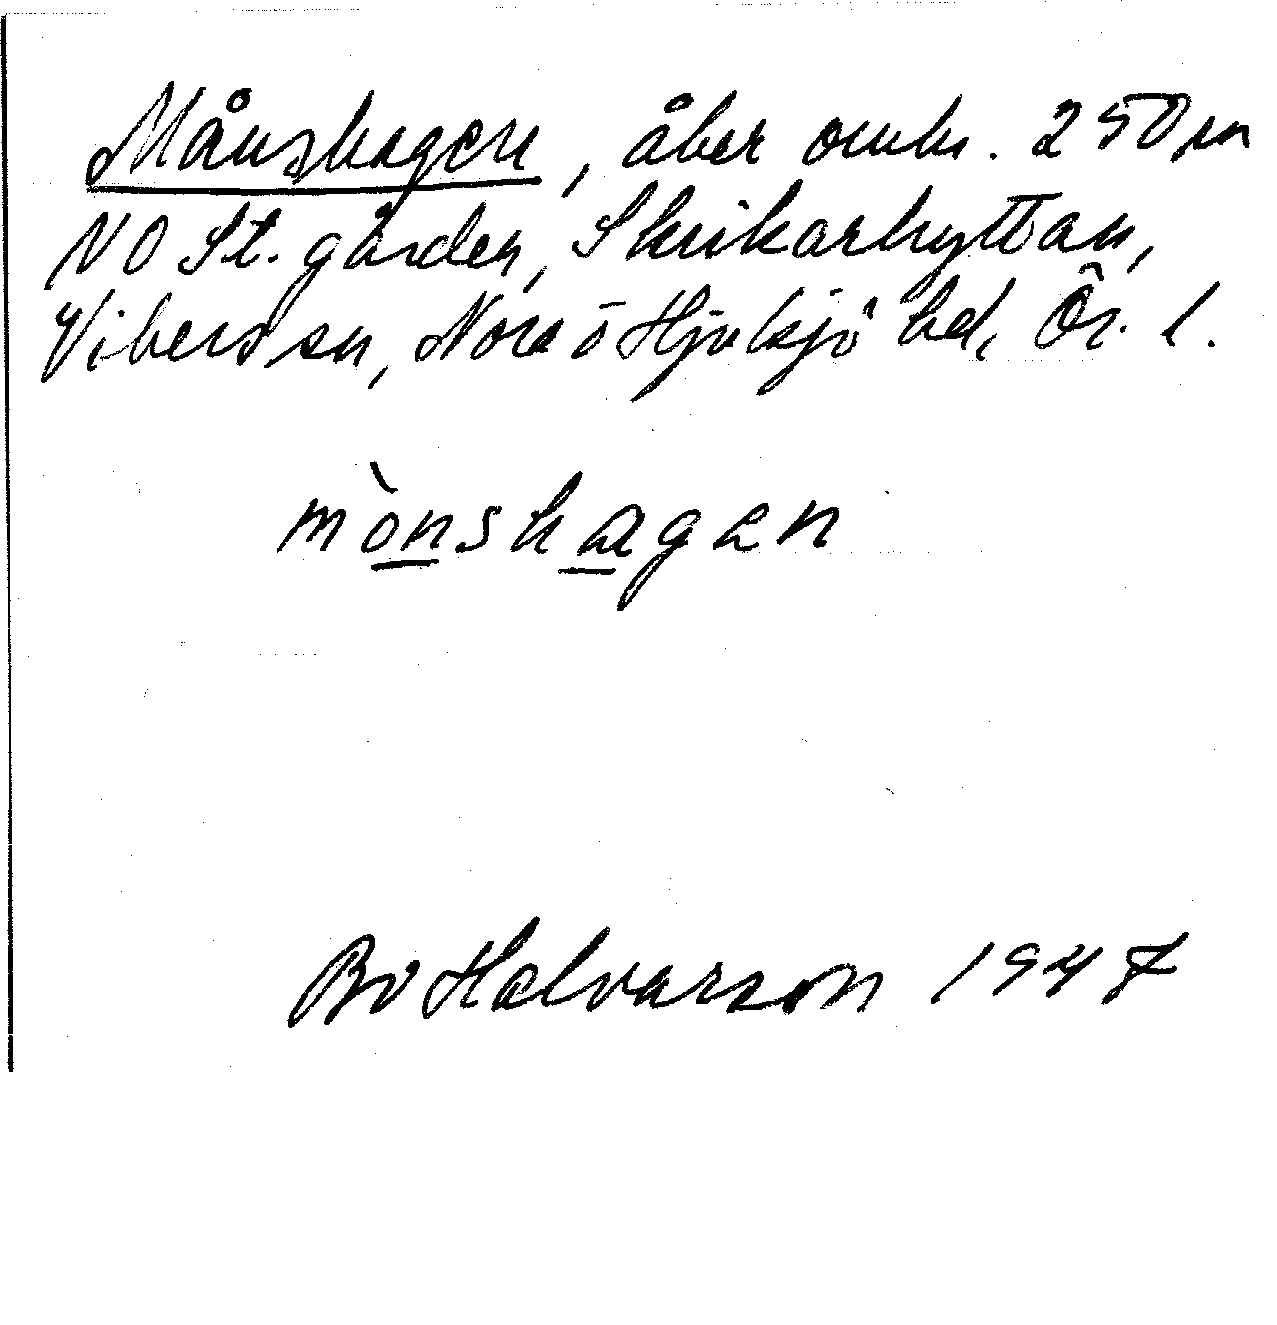 Månshagen, åker omkr. 250 m
NO St. gården, Skrikarhyttan,
Vikers sn, Nora o Hjulsjö bd, Ör. l.
mònshagan
Bo Halvarson 1947